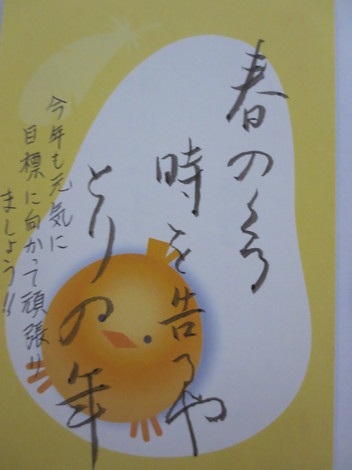 春のくる
時を告るや
とりの年
今年も元気に
目標に向かって頑張り
ましょう!!